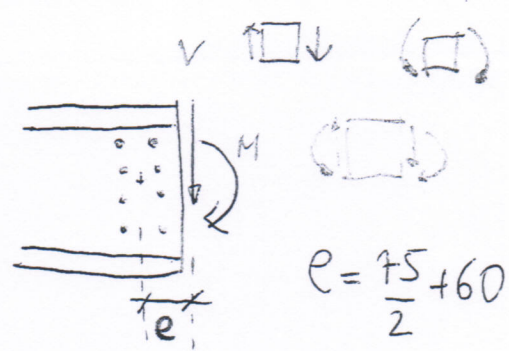 V
M
e
e = 75/2 + 60